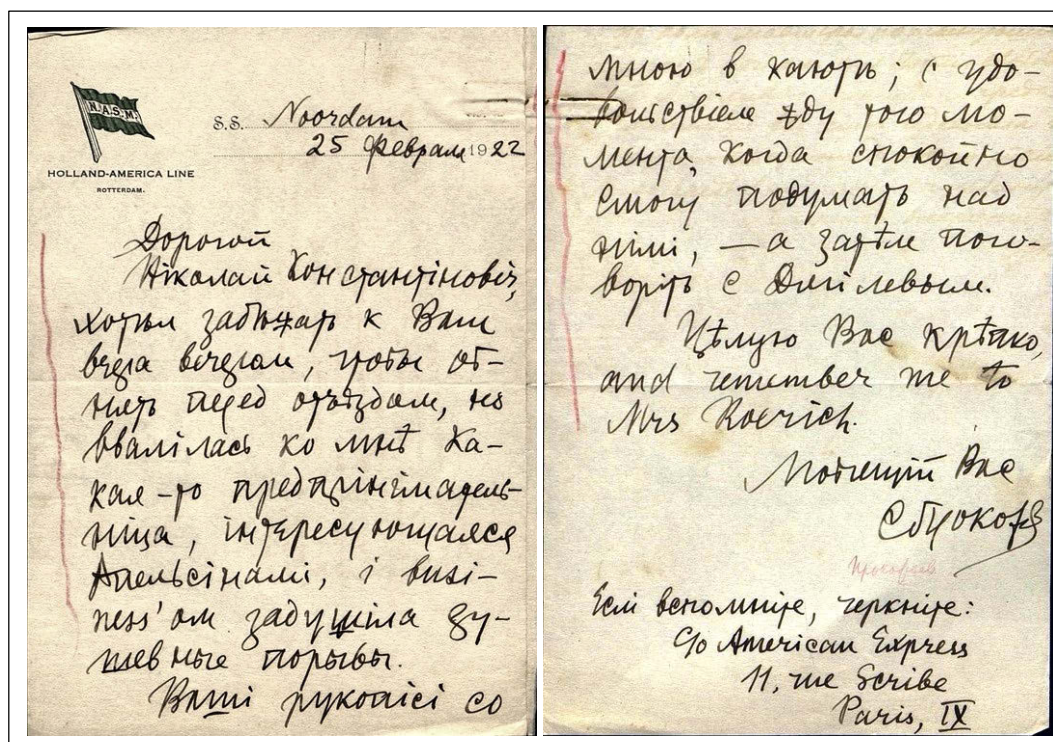 N.A.S.M.
HOLLAND-AMERICA LINE
ROTTERDAM.
S.S. Noordam
25 Февраля 1922
Дорогой
Ніколай Константіновіч,
хотѣл забѣжать к Вам
вчера вечером, чтобы об-
нять перед отъѣздом, но
ввалілась ко мнѣ ка-
кая-то предпрініматель-
ніца, інтересующаяся
Апельсінамі, і busi-
ness'ом задушіла ду-
шевные порывы.
Ваші рукопісі со
мною в каютѣ; с удо-
вольствіем жду того мо-
мента, когда спокойно
смогу подумать над
німі, — а затѣм пого-
воріть с Дягілевым.
Цѣлую Вас крѣпко,
and remember me to
Mrs Roerich.
Любящій Вас
СПркфв
Прокофьев
Еслі вспомніте, черкніте:
c/o American Express
11, rue Scribe
Paris, IX